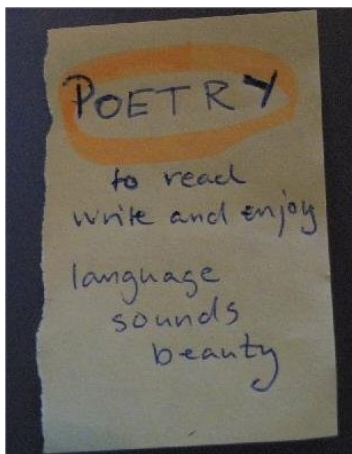 POETRY
to read
write and enjoy
language
sounds
beauty